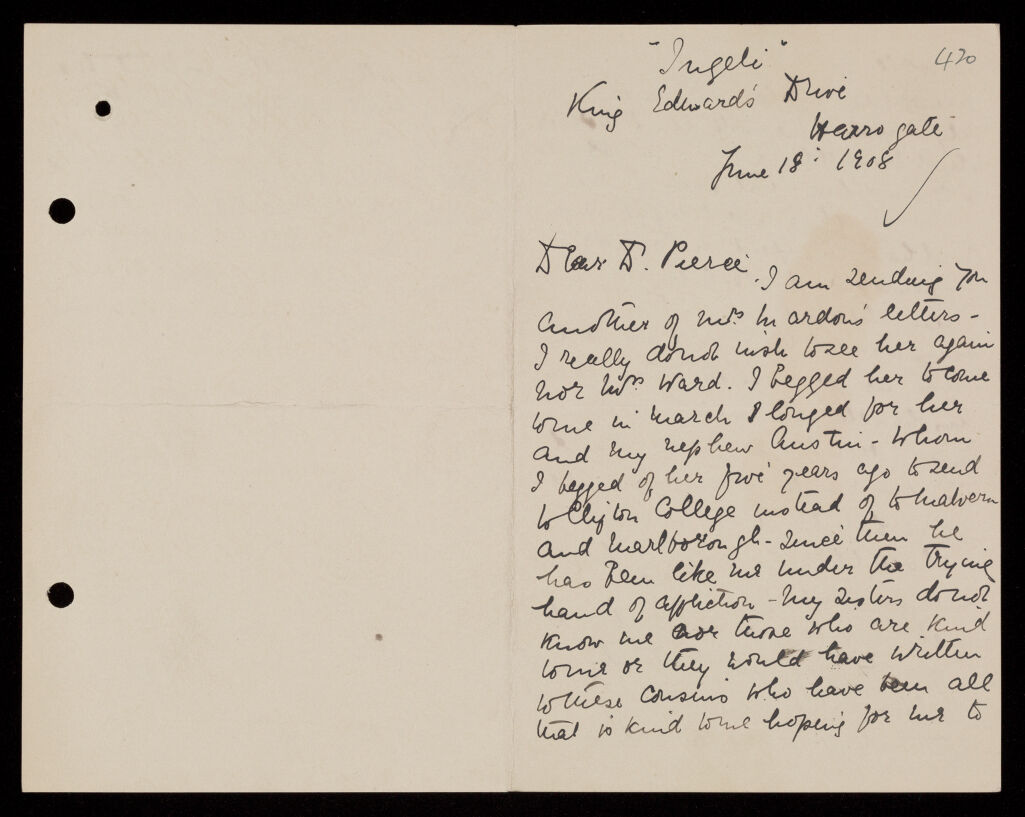 "Ingeli" 420
King Edward's Drive
Harrogate
June 18: 1908
Dear D. Pierce
I am sending you
another of Mrs Mardon's letters -
I really do not wish to see her again
nor Mrs Ward. I begged her to come
to me in March I longed for her
and my nephew Austin - whom
I begged of her five years ago to send
to Clifton College instead of to Malvern
and Marlborough - since then he
has been like me under the trying
hand of affliction - My sisters do not
know me nor those who are kind
to me or they would have written
to these cousins who have been all
that is kind to me hoping for me to